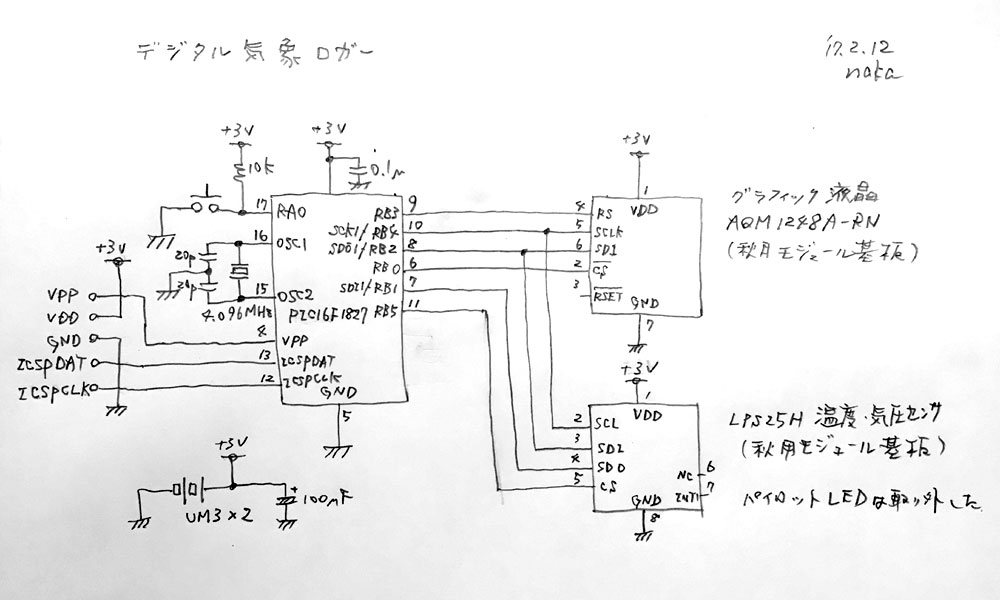 デジタル気象ロガー
'17.2.12
naka
+3V
+3V
10k
0.1μ
17
RA0
16
OSC1
20p
20p
15
OSC2
4.096MHz
PIC16F1827
4
VPP
13
ICSPDAT
12
ICSPCLK
GND
5
RB3
9
SCK1/RB4
10
SDO1/RB2
8
RB0
6
SDI1/RB1
7
RB5
11
+3V
VPP
VDD
GND
ICSPDAT
ICSPCLK
+3V
UM3×2
+
100μF
+3V
1
VDD
4
RS
5
SCLK
6
SDI
2
CS
3
RSET
GND
7
グラフィック液晶
AQM1248A-RN
(秋月モジュール基板)
+3V
1
VDD
2
SCL
3
SDI
4
SDO
5
CS
NC
6
INT1
7
GND
8
LPS25H 温度・気圧センサ
(秋月モジュール基板)
パイロットLEDは取り外した